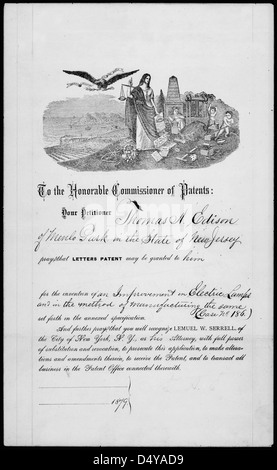 To the Honorable Commissioner of Patents:
Your Petitioner Thomas A. Edison
of Menlo Park in the State of New Jersey
prays that LETTERS PATENT may be granted to him
for the invention of an Improvement in Electric Lamps
and in the method of manufacturing the same
(Case No 186.)
set forth in the annexed specification.
And further prays that you will recognize LEMUEL W. SERRELL, of
the City of New York, N. Y., as his Attorney, with full power
of substitution and revocation, to prosecute this application, to make altera-
tions and amendments therein, to receive the Patent, and to transact all
business in the Patent Office connected therewith.
1879
alamy
Image ID: D4YAD9
www.alamy.com